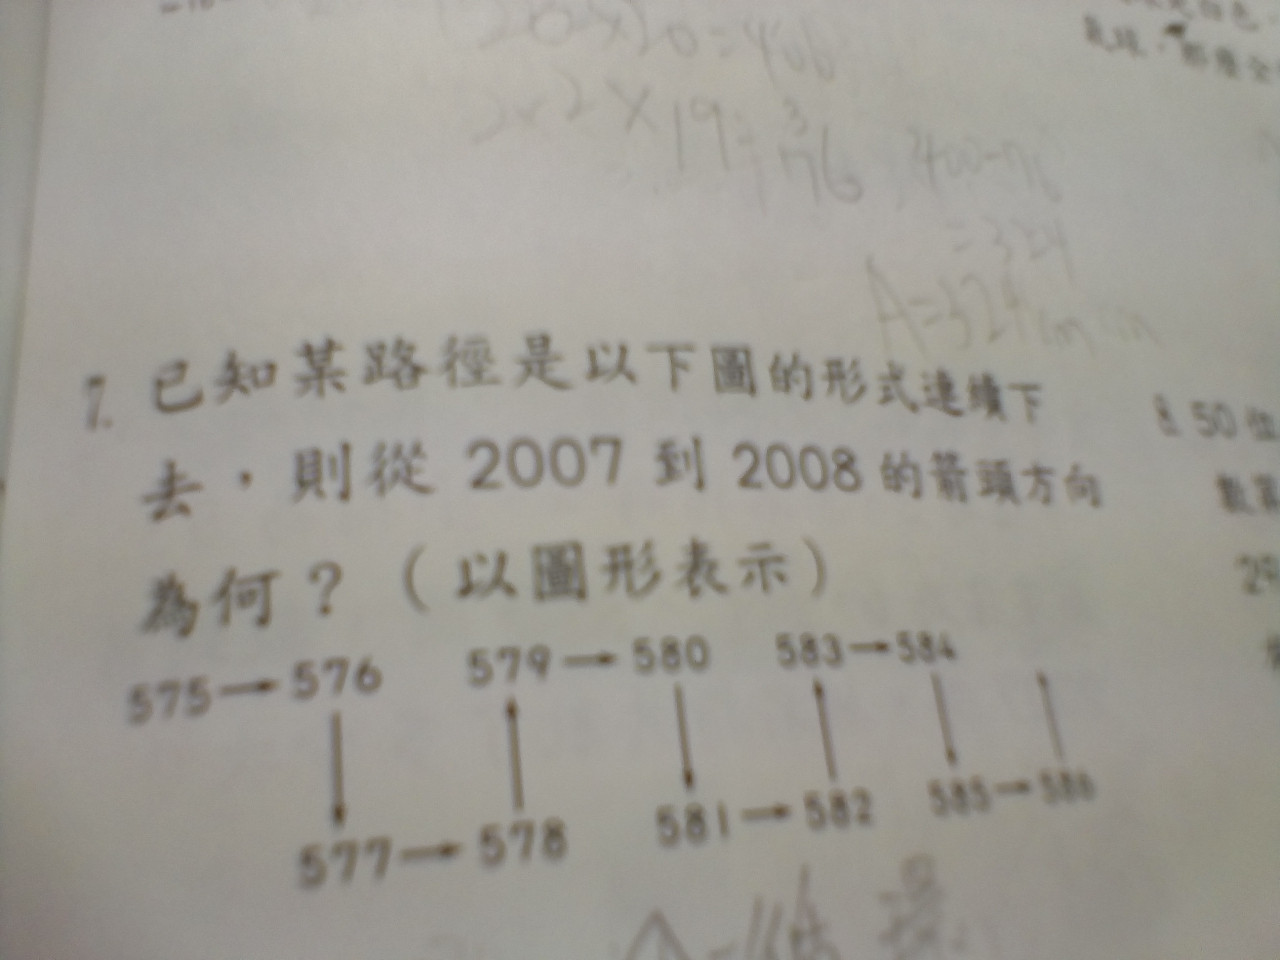 2×2×19=76
400-76
=324
A=324
7. 已知某路徑是以下圖的形式連續下
去，則從 2007 到 2008 的箭頭方向
為何？（以圖形表示）
575→576 579→580 583→584
577→578 581→582 585→586
8. 50 位